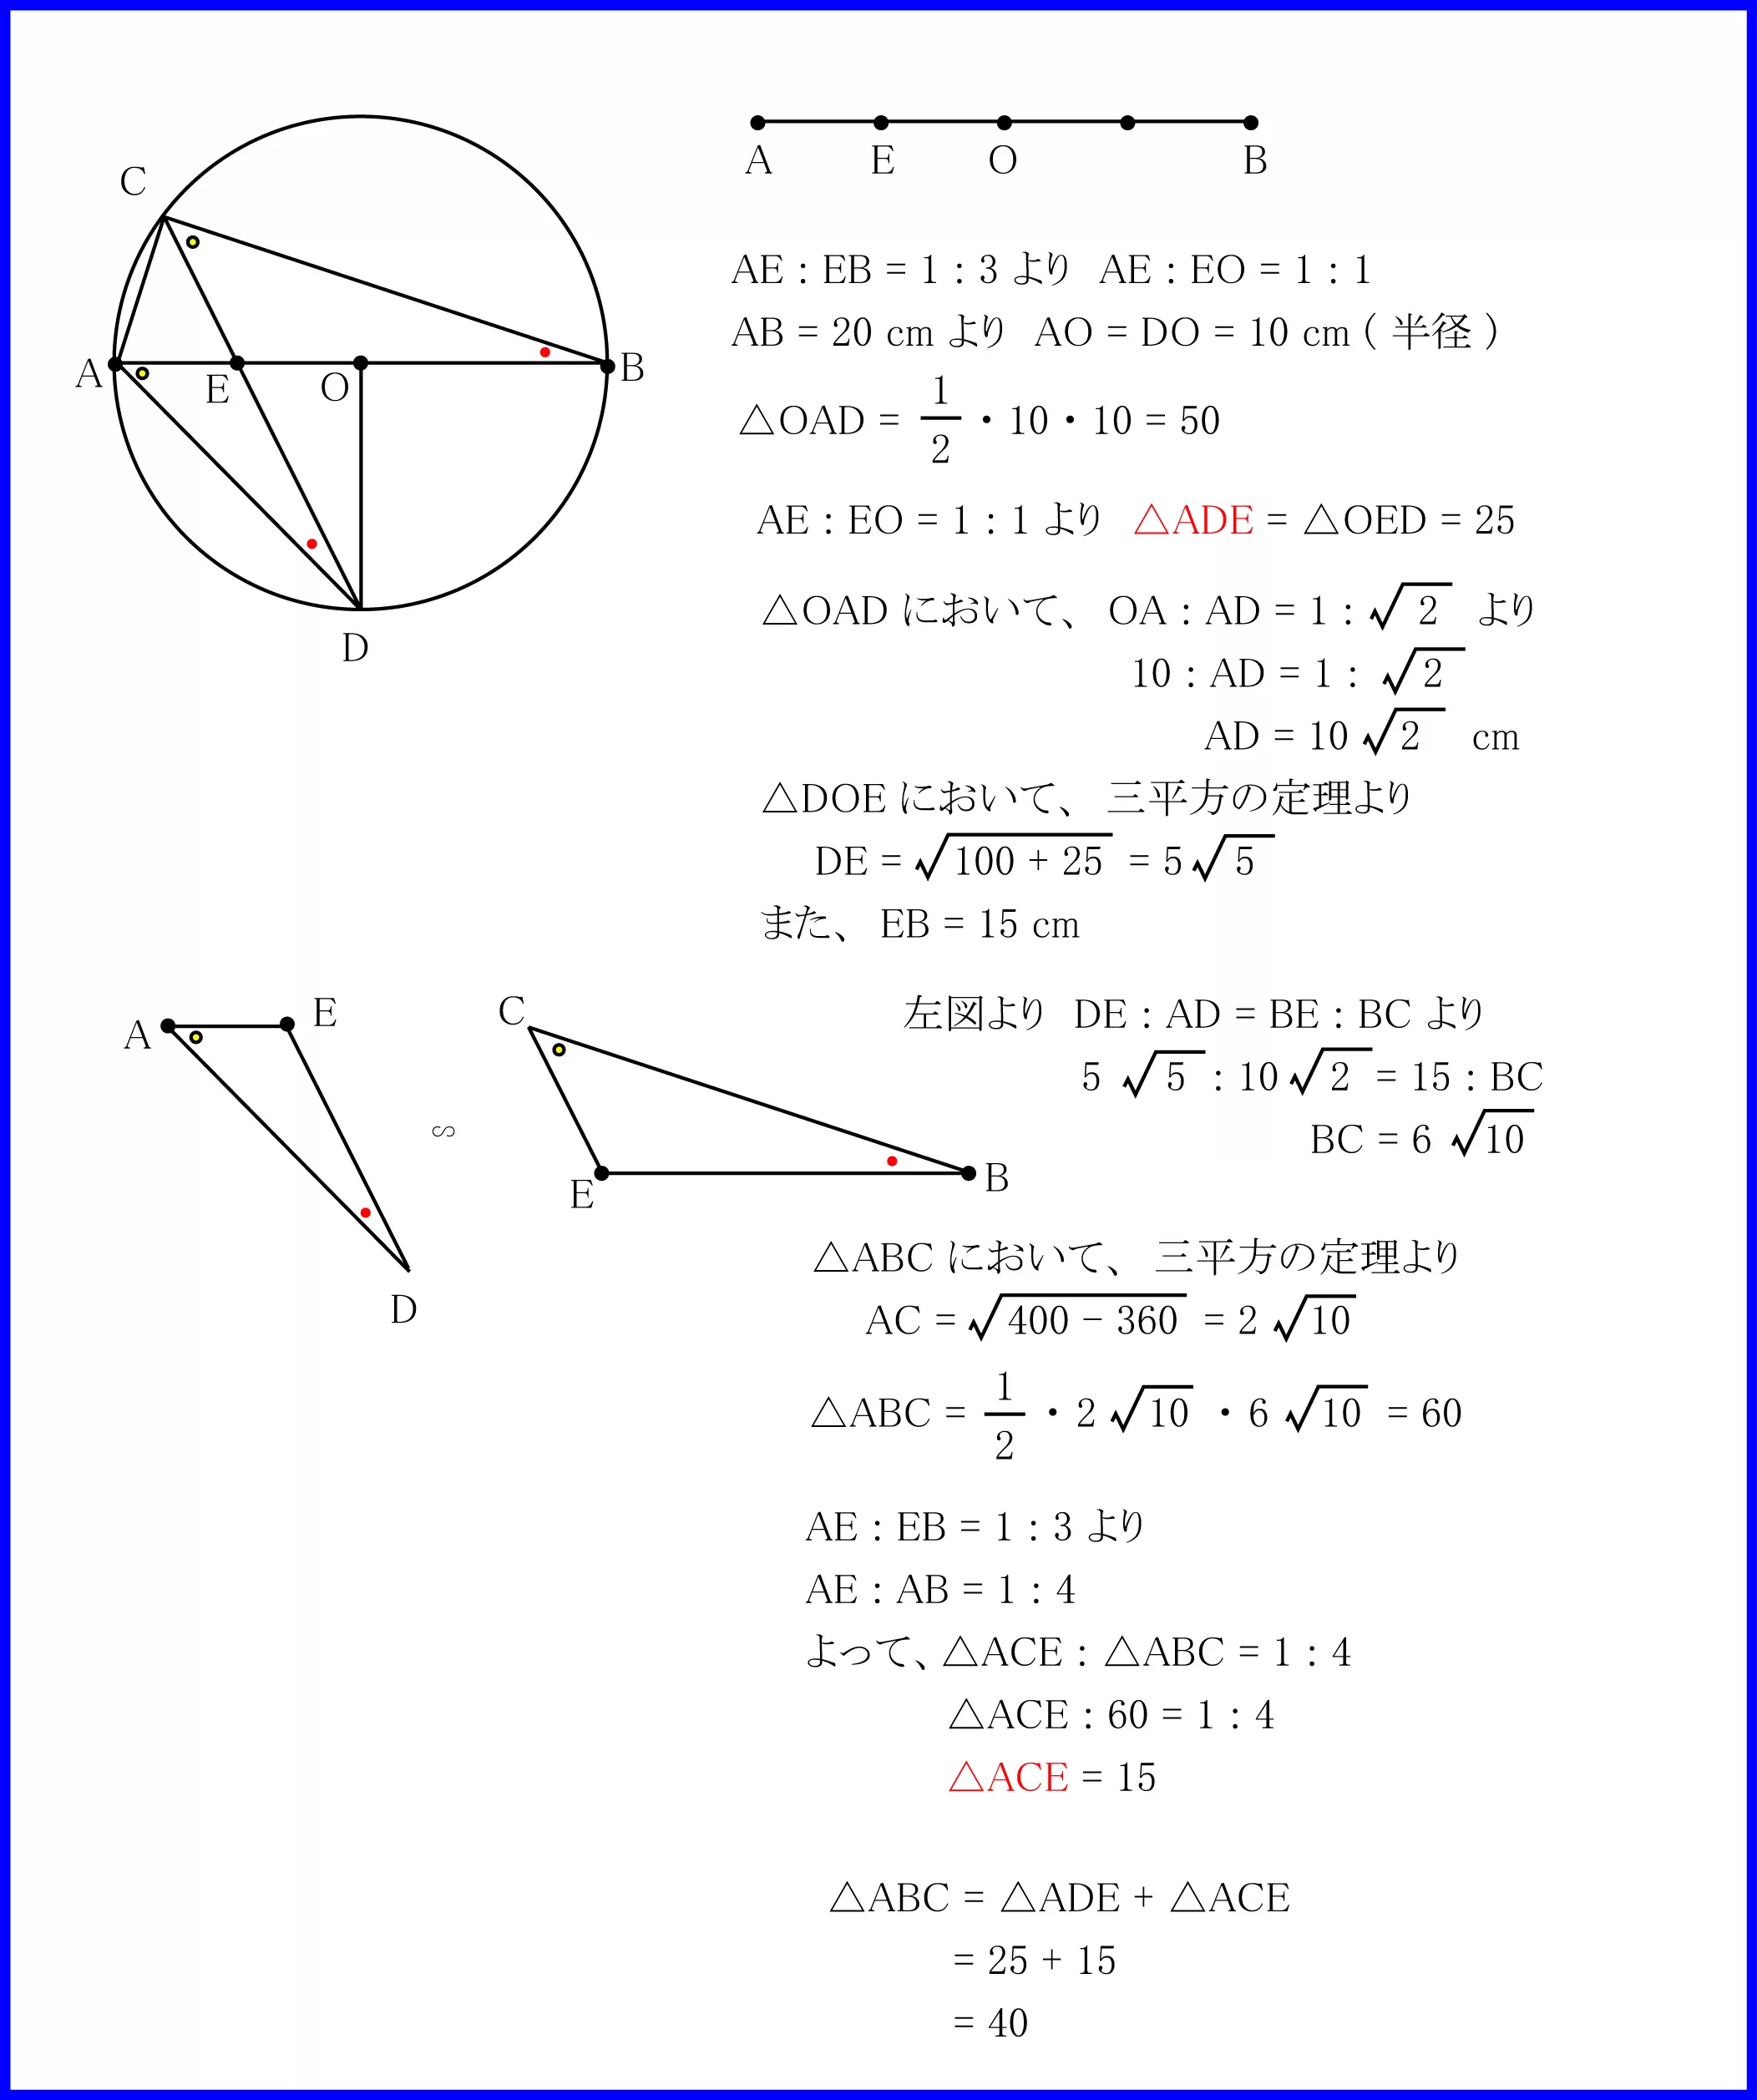 C
A
E
O
B
D
A E O B
AE : EB = 1 : 3 より AE : EO = 1 : 1
AB = 20 cm より AO = DO = 10 cm ( 半径 )
△OAD = 1/2 ・ 10 ・ 10 = 50
AE : EO = 1 : 1 より △ADE = △OED = 25
△OAD において、 OA : AD = 1 : √2 より
10 : AD = 1 : √2
AD = 10 √2 cm
△DOE において、 三平方の定理より
DE = √100 + 25 = 5 √5
また、 EB = 15 cm
A
E
D
∽
C
E
B
左図より DE : AD = BE : BC より
5 √5 : 10 √2 = 15 : BC
BC = 6 √10
△ABC において、 三平方の定理より
AC = √400 − 360 = 2 √10
△ABC = 1/2 ・ 2 √10 ・ 6 √10 = 60
AE : EB = 1 : 3 より
AE : AB = 1 : 4
よって、△ACE : △ABC = 1 : 4
△ACE : 60 = 1 : 4
△ACE = 15
△ABC = △ADE + △ACE
= 25 + 15
= 40